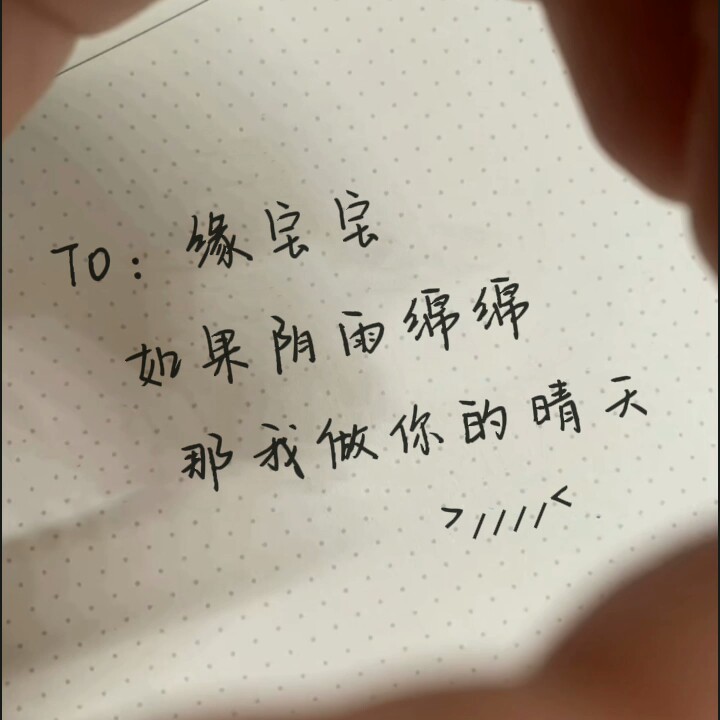 TO：缘宝宝
如果阴雨绵绵
那我做你的晴天
>////<